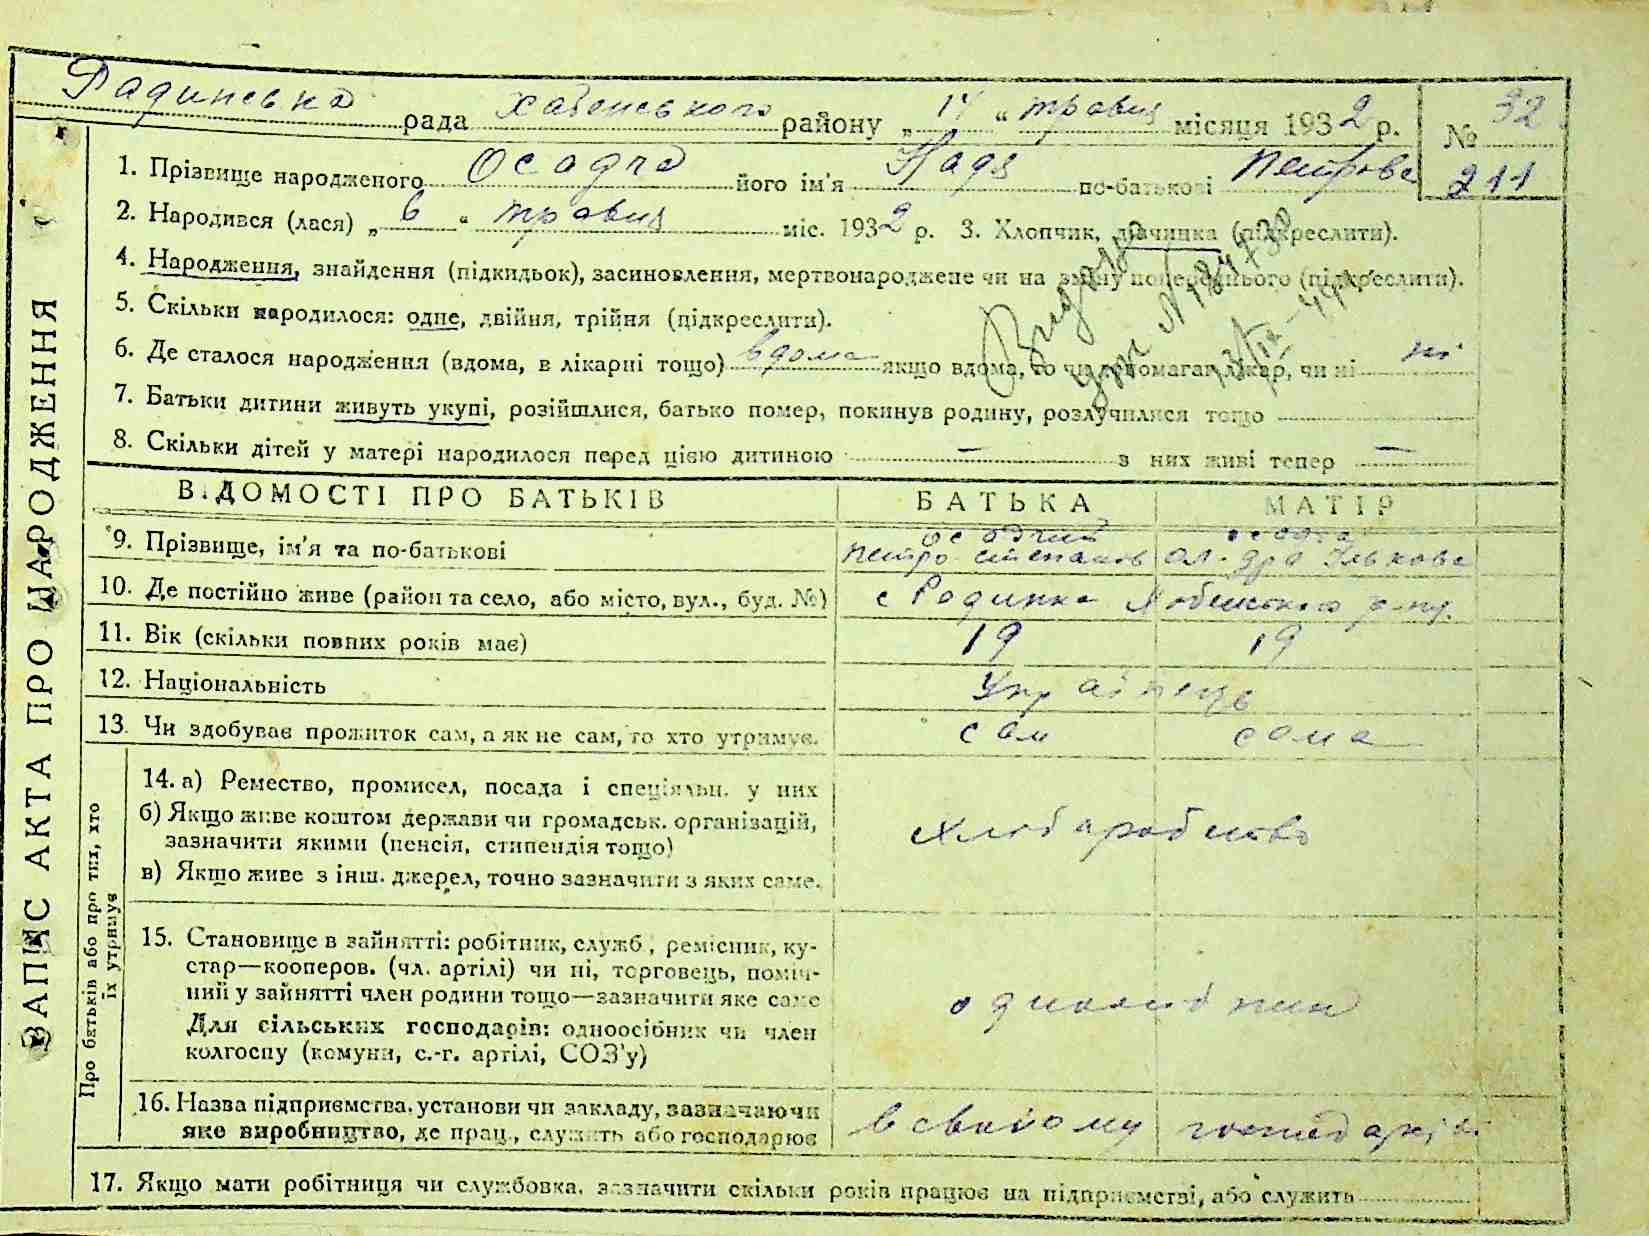 Радинська рада Хабенського району „ 14 “ травня місяця 1932 р. № 32
1. Прізвище народженого Осадча його ім'я Надя по-батькові Петрова 211
2. Народився (лася) „ 6 “ травня міс. 1932 р. 3. Хлопчик, дівчинка (підкреслити).
4. Народження, знайдення (підкидьок), засиновлення, мертвонароджене чи на зміну попереднього (підкреслити).
5. Скільки народилося: одне, двійня, трійня (підкреслити).
6. Де сталося народження (вдома, в лікарні тощо) вдома якщо вдома, то чи допомагав лікар, чи ні ні
7. Батьки дитини живуть укупі, розійшлися, батько помер, покинув родину, розлучилися тощо
8. Скільки дітей у матері народилося перед цією дитиною — з них живі тепер —
ВІДОМОСТІ ПРО БАТЬКІВ БАТЬКА МАТІР
9. Прізвище, ім'я та по-батькові Осадчий Петро Степанов Осадча Ол-дра Ількова
10. Де постійно живе (район та село, або місто, вул., буд. №) с Радинка Хабенського р-ну.
11. Вік (скільки повних років має) 19 19
12. Національність Українець
13. Чи здобуває прожиток сам, а як не сам, то хто утримує. сам сама
14. а) Ремество, промисел, посада і спеціяльн. у них
б) Якщо живе коштом держави чи громадськ. організацій,
зазначити якими (пенсія, стипендія тощо)
хлібаробство
в) Якщо живе з інш. джерел, точно зазначити з яких саме.
15. Становище в зайнятті: робітник, служб., ремісник, ку-
стар—кооперов. (чл. артілі) чи ні, торговець, поміч-
ний у зайнятті член родини тощо—зазначити яке саме
Для сільських господарів: одноосібник чи член
колгоспу (комуни, с.-г. артілі, СОЗ'у)
16. Назва підприємства, установи чи закладу, зазначаючи
яке виробництво, де прац., служить або господарює
в своїому господарстві
17. Якщо мати робітниця чи службовка, зазначити скільки років працює на підприємстві, або служить
ЗАПИС АКТА ПРО НАРОДЖЕННЯ
Про батьків або про тих, хто
їх утримує
Видано